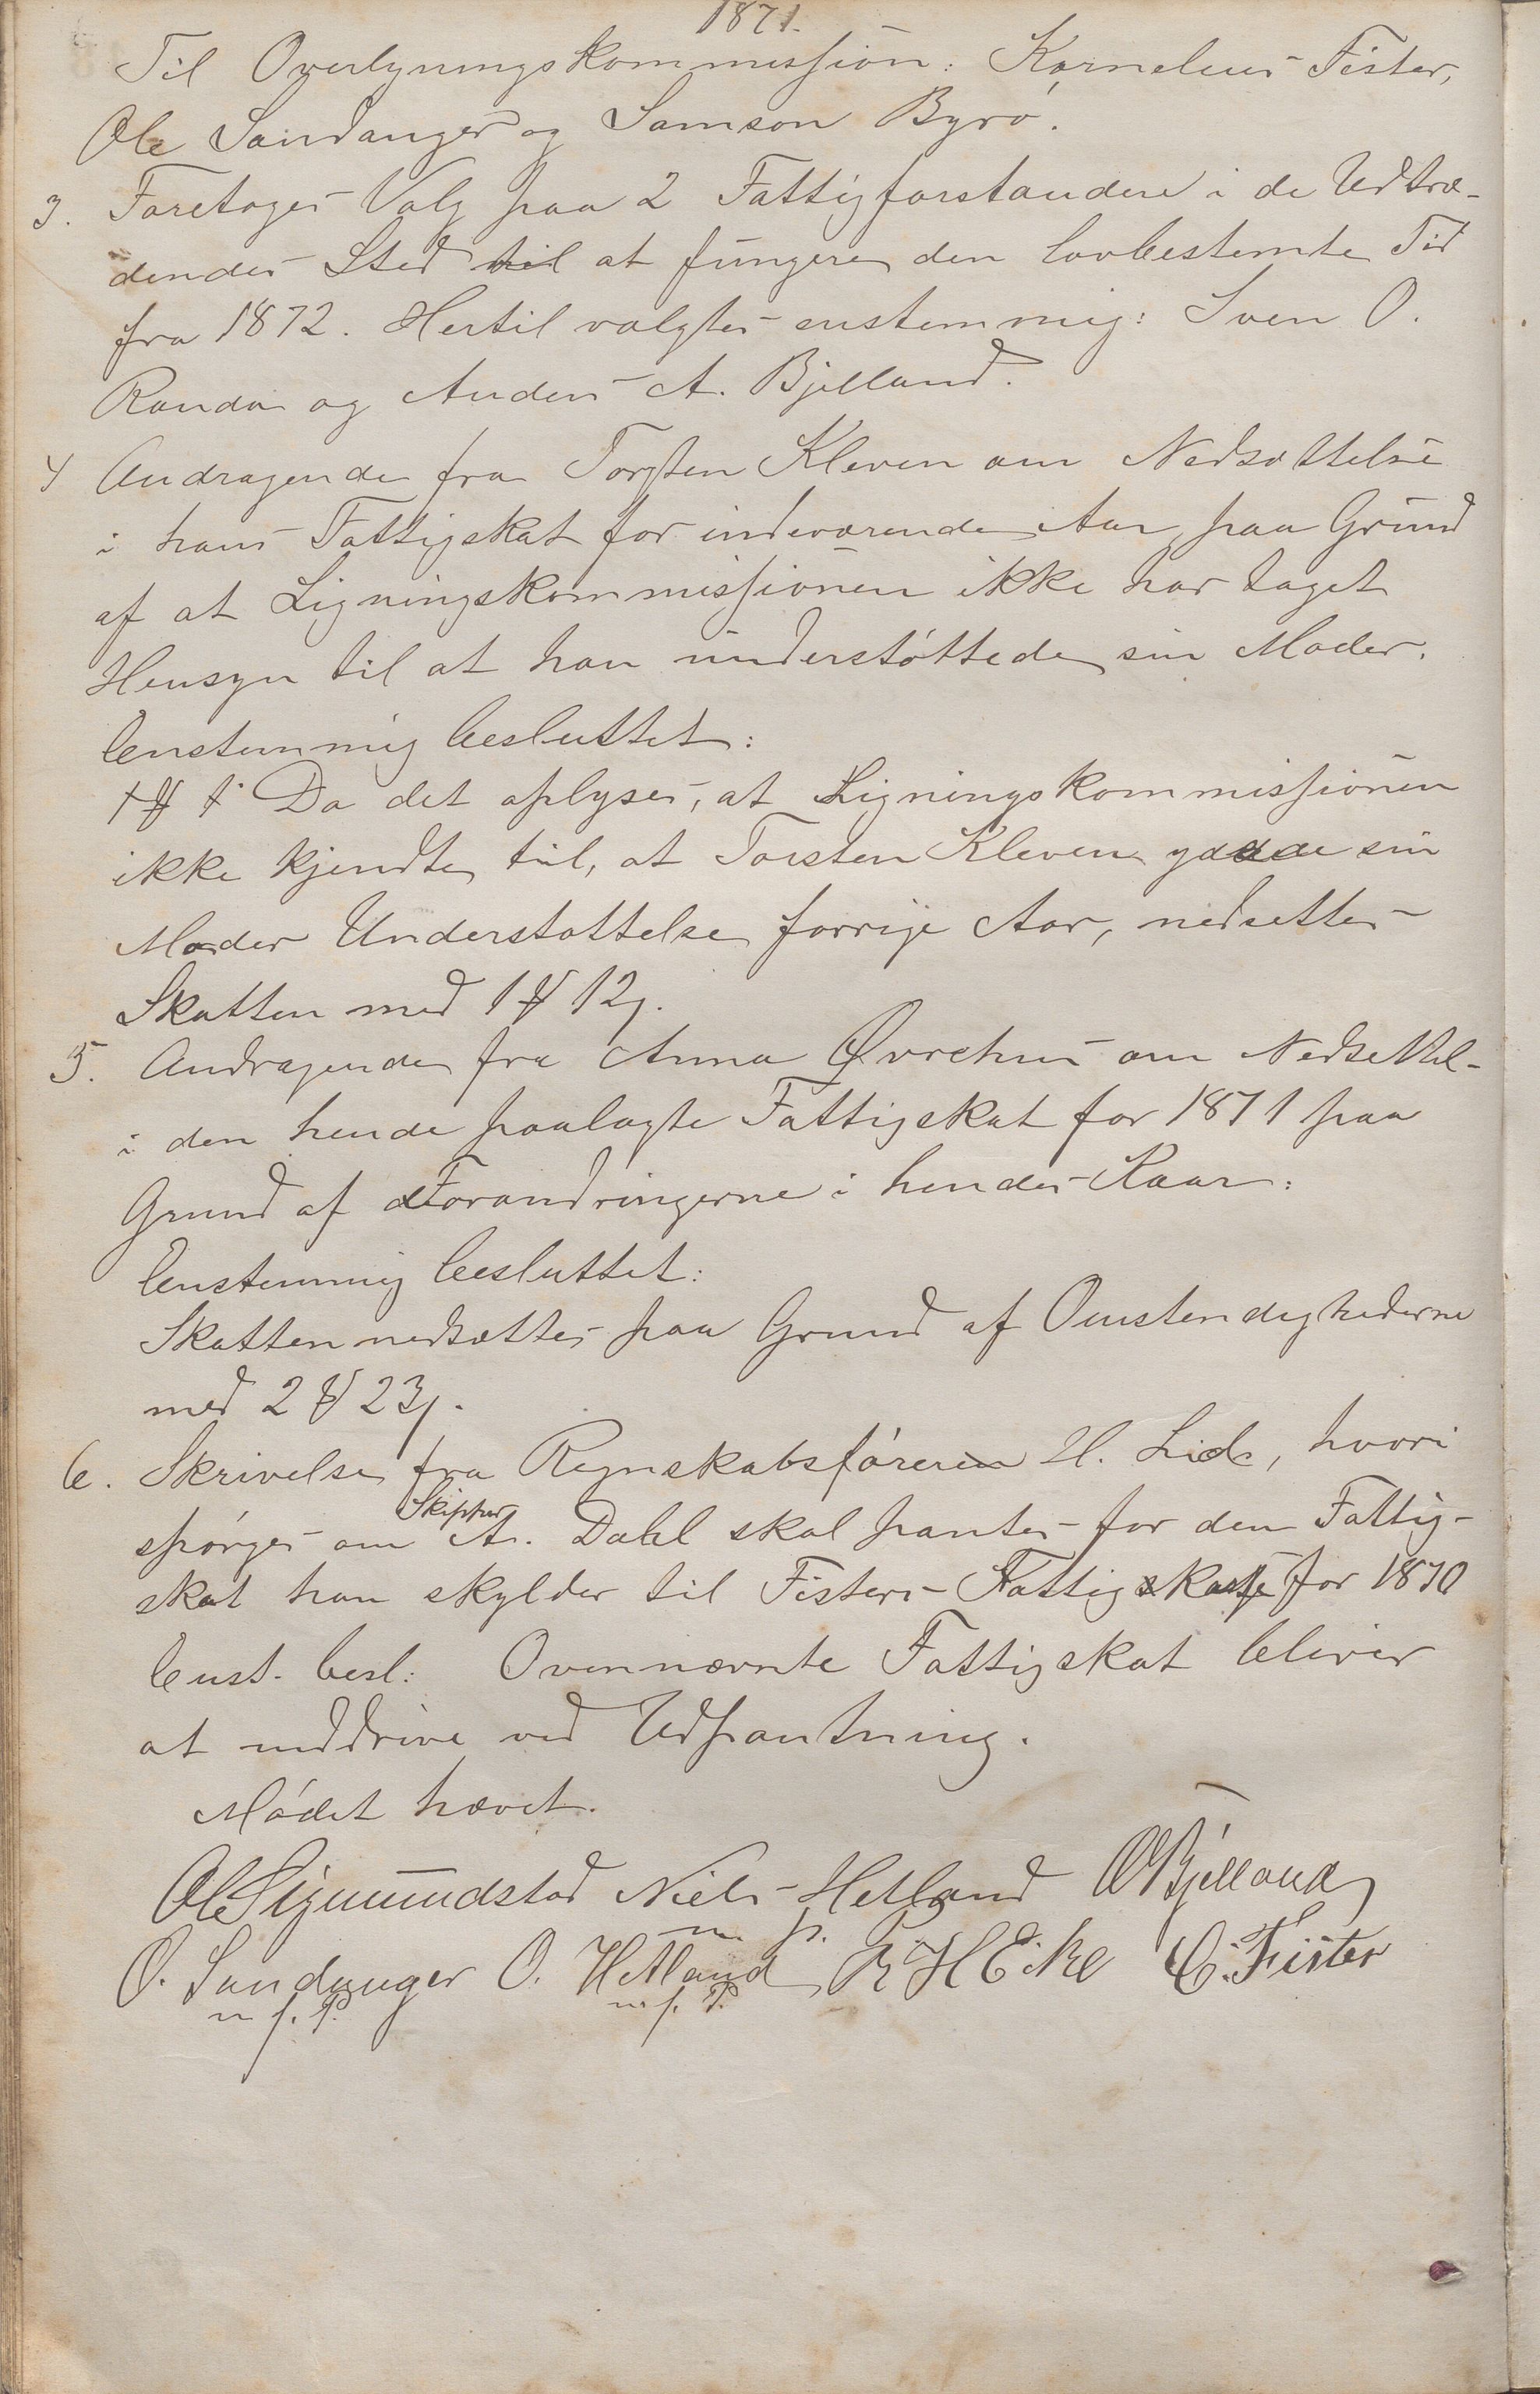 1871.
Til Overlyningskommission: Kornelius Fister,
Ole Sandanger og Samson Byrø.
3. Foretoges Valg paa 2 Fattigforstandere i de Udtræ-
dendes Sted til at fungere den lovbestemte Tid
fra 1872. Hertil valgtes enstemmig: Sven O.
Randa og Anders A. Bjelland.
4 Andragende fra Torsten Kleven om Nedsættelse
i hans Fattigskat for indeværende Aar paa Grund
af at Ligningskommissionen ikke har taget
Hensyn til at han understøttede sin Moder.
Enstemmig besluttet:
Da det oplyses, at Ligningskommissionen
ikke kjendte til, at Torsten Kleven ydede sin
Moder Understøttelse forrige Aar, nedsettes
Skatten med 1 12
5. Andragende fra Anna Øvrehus om Nedsettel-
i den hende paalagte Fattigskat for 1871 paa
Grund af Forandringerne i hendes Kaar:
Enstemmig besluttet:
Skatten nedsættes paa Grund af Omstendighederne
med 2 23
6. Skrivelse fra Regnskabsføreren H. Lid, hvori
Skipper
spørges om A. Dahl skal pantes for den Fattig-
skat han skylder til Fisters Fattigkasse for 1870
Enst. besl: Ovennævnte Fattigskat bliver
at inddrive ved Udpantning.
Mødet hævet.
Ole Sigmundstad Niels Hetland O Bjelland
m p.
O. Sandanger O. Hetland R H Eike C. Fister
m f. P. m f. P.